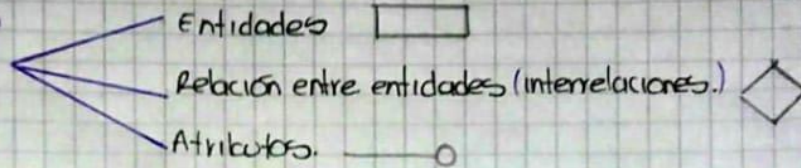 Entidades
Relación entre entidades (interrelaciones.)
Atributos.